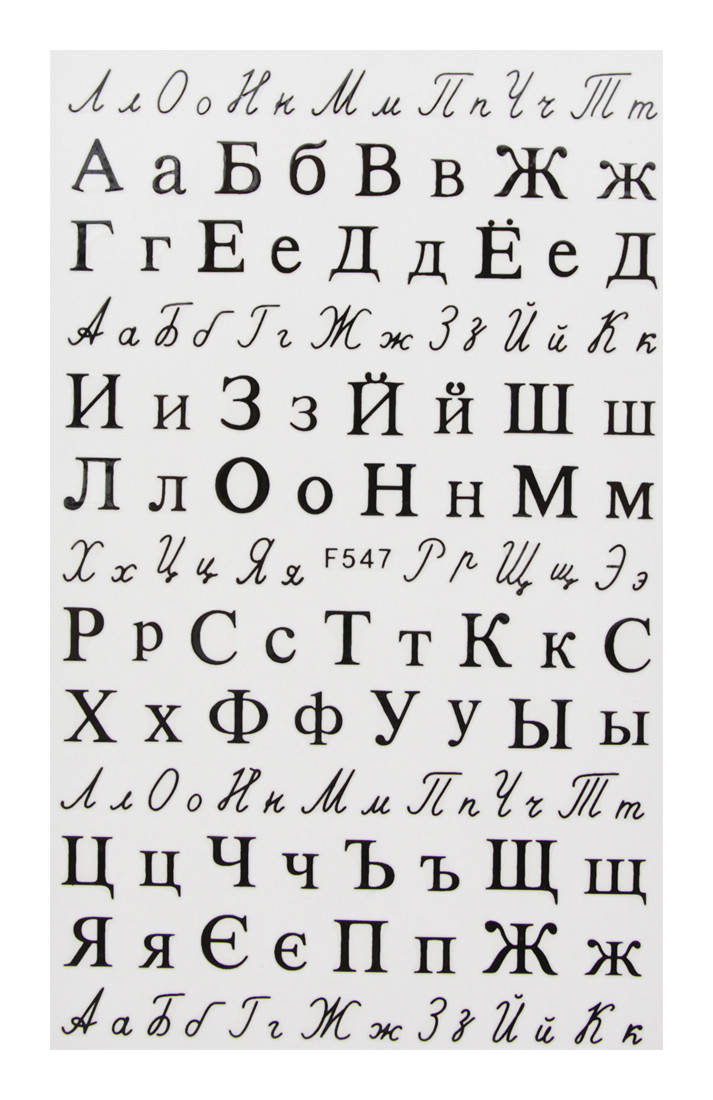 Л л О о Н н М м П п Ч ч Т т
А а Б б В в Ж ж
Г г Е е Д д Ё е Д
А а Б б Г г Ж ж З з Й й К к
И и З з Й й Ш ш
Л л О о Н н М м
Х х Ц ц Я я F547 Р р Щ щ Э э
Р р С с Т т К к С
Х х Ф ф У у Ы ы
Л л О о Н н М м П п Ч ч Т т
Ц ц Ч ч Ъ ъ Щ щ
Я я Є є П п Ж ж
А а Б б Г г Ж ж З з Й й К к